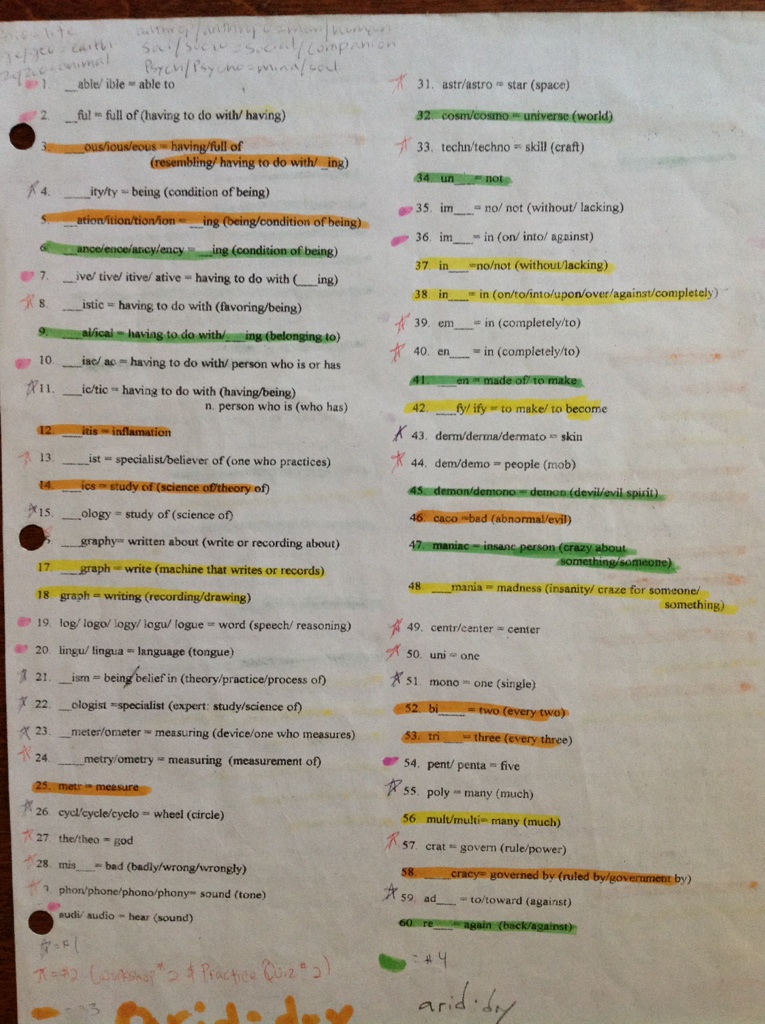 bio = life anthrop/anthropo = man/human
ge/geo = earth soci/socio = social/companion
zo/zoo = animal psych/psycho = mind/soul
1. __able/ ible = able to
2. __ful = full of (having to do with/ having)
3. ___ous/ious/eous = having/full of
(resembling/ having to do with/ _ing)
4. ____ity/ty = being (condition of being)
5. __ation/ition/tion/ion = __ing (being/condition of being)
6. __ance/ence/ancy/ency = __ing (condition of being)
7. __ive/ tive/ itive/ ative = having to do with (___ing)
8. ___istic = having to do with (favoring/being)
9. ___al/ical = having to do with/___ing (belonging to)
10. ___iac/ ac = having to do with/ person who is or has
11. ___ic/tic = having to do with (having/being)
n. person who is (who has)
12. ___itis = inflamation
13. ____ist = specialist/believer of (one who practices)
14. ___ics = study of (science of/theory of)
15. ___ology = study of (science of)
___graphy= written about (write or recording about)
17. ___graph = write (machine that writes or records)
18 graph = writing (recording/drawing)
19. log/ logo/ logy/ logu/ logue = word (speech/ reasoning)
20. lingu/ lingua = language (tongue)
21. __ism = being/belief in (theory/practice/process of)
22. __ologist =specialist (expert: study/science of)
23. __meter/ometer = measuring (device/one who measures)
24. ____metry/ometry = measuring (measurement of)
25. metr = measure
26. cycl/cycle/cyclo = wheel (circle)
27. the/theo = god
28. mis___= bad (badly/wrong/wrongly)
phon/phone/phono/phony= sound (tone)
audi/ audio = hear (sound)
☆=#1
☆=#2 (Quiz #2 & Practice Quiz #2)
= #3 arid:dry
31. astr/astro = star (space)
32. cosm/cosmo = universe (world)
33. techn/techno = skill (craft)
34. un___= not
35. im___= no/ not (without/ lacking)
36. im___= in (on/ into/ against)
37. in___=no/not (without/lacking)
38. in___= in (on/to/into/upon/over/against/completely)
39. em___= in (completely/to)
40. en___= in (completely/to)
41. ___en = made of/ to make
42. ___fy/ ify = to make/ to become
43. derm/derma/dermato = skin
44. dem/demo = people (mob)
45. demon/demono = demon (devil/evil spirit)
46. caco =bad (abnormal/evil)
47. maniac = insane person (crazy about
something/someone)
48. ___mania = madness (insanity/ craze for someone/
something)
49. centr/center = center
50. uni = one
51. mono = one (single)
52. bi____= two (every two)
53. tri ___= three (every three)
54. pent/ penta = five
55. poly = many (much)
56 mult/multi= many (much)
57. crat = govern (rule/power)
58. ____cracy= governed by (ruled by/government by)
59. ad___ = to/toward (against)
60. re___= again (back/against)
= #4
arid:dry